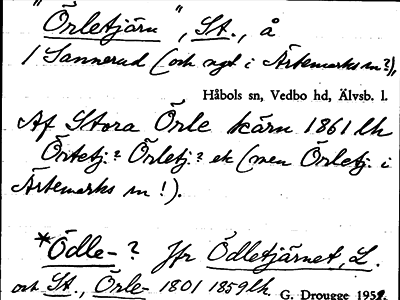 "Örletjärn", St., å
/ Sannerud (och ngt i Ärtemarks sn?),
Håbols sn, Vedbo hd, Älvsb. l.
Af Stora Örle kärn 1861 lk
Örtetj.? Örletj.? ek (men Örletj. i
Ärtemarks sn!).
*Ödle-? Jfr Ödletjärnet, L.
och St., Örle- 1801 1859 lk.
G. Drougge 1952.